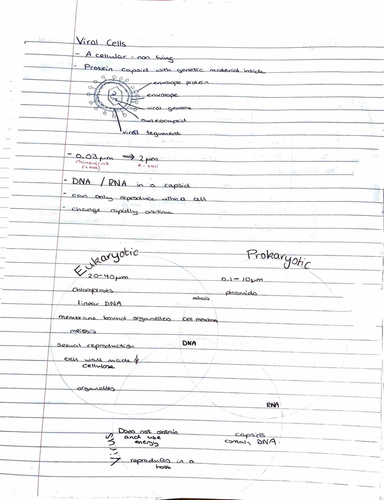 Viral Cells
- Acellular - non living
- Protein capsid with genetic material inside
envelope protein
envelope
viral genome
nucleocapsid
viral tegument
- 0.03µm → 2µm
- DNA / RNA in a capsid
- can only reproduce within a cell
- change rapidly overtime
Eukaryotic Prokaryotic
20-40µm 0.1-10µm
chloroplasts plasmids
linear DNA
membrane bound organelles cell membrane
meiosis
sexual reproduction DNA
cell wall made of
cellulose
organelles
RNA
Does not obtain
and use
energy
capsids
contain DNA
reproduces in a
host